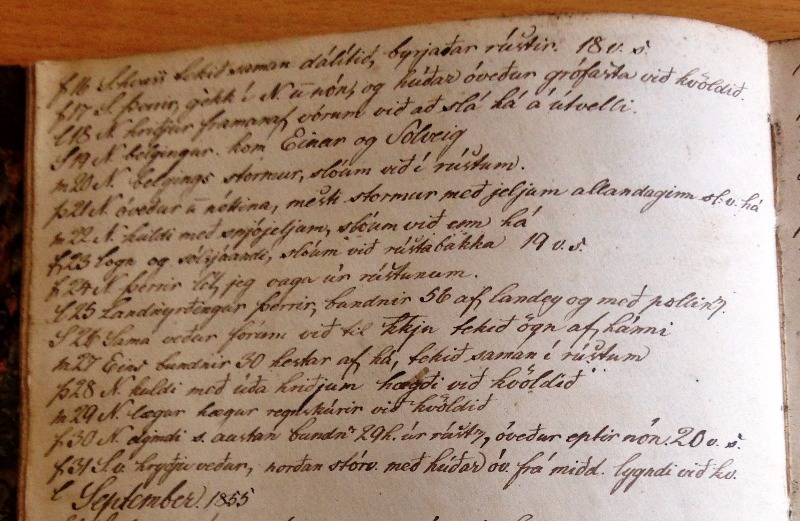 f 16 S hvass tekið saman dálítið, byrjaðar rústir. 18 v. s.
f 17 S. þerrir, gekk í N. u nón, og húðar óveður grófasta við kvöldið.
l 18 N. hríðjur framanaf vórum við að slá há á útvelli.
S 19 N belgingur. kom Einar og Sólveig
m 20 N. belgings stormur, slóum við í rústum.
þ 21 N óveður u nóttina, mesti stormur með jeljum allandaginn sl. v. há
m 22 N. kuldi með snjójeljum, slóum við um há
f 23 Logn og sólsjáandi, slóum við rústabakka 19 v. s.
f 24 N þerrir let jeg vaga úr rústunum.
l 25 Landnyrðingur þerrir, bundnir 56 af landey og með pollin.
S 26 Sama veður fórum við til kkju tekið ögn af hánni
m 27 Eins bundnir 30 hestar af há, tekið saman í rústum
þ 28 N. kuldi með úða hríðjum hægði við kvöldið
m 29 N-lægur hægur regnskúrir við kvöldið
f 30 N. dimdi s. austan bundn 29 h. úr rústr, óveður eptir nón. 20 v. s.
f 31 S.v. hryðju veður, norðan stórv. með húðar óv. frá midd. lygndi við kv.
l September. 1855